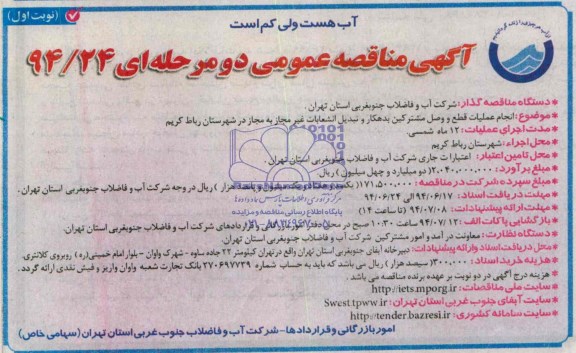 (نوبت اول)
آب هست ولی کم است
آگهی مناقصه عمومی دو مرحله‌ای ۹۴/۲۴
* دستگاه مناقصه گذار: شرکت آب و فاضلاب جنوبغربی استان تهران.
* موضوع: انجام عملیات قطع و وصل مشترکین بدهکار و تبدیل انشعابات غیر مجاز به مجاز در شهرستان رباط کریم
* مدت اجرای عملیات: ۱۲ ماه شمسی.
* محل اجراء: شهرستان رباط کریم
* محل تامین اعتبار: اعتبارات جاری شرکت آب و فاضلاب جنوبغربی استان تهران.
* مبلغ برآورد: ۲.۰۴۰.۰۰۰.۰۰۰ (دو میلیارد و چهل میلیون) ریال.
* مبلغ سپرده شرکت در مناقصه: ۱۷۱.۵۰۰.۰۰۰ (یکصد و هفتاد و یک میلیون و پانصد هزار) ریال در وجه شرکت آب و فاضلاب جنوبغربی استان تهران.
* مهلت دریافت اسناد: ۹۴/۰۶/۱۷ الی ۹۴/۰۶/۲۴
* مهلت ارائه پیشنهادات: ۹۴/۰۷/۰۸ (تا ساعت ۱۴)
* بازگشایی پاکات الف: ۹۴/۰۷/۱۲ ساعت ۱۰:۳۰ صبح در محل دفتر امور بازرگانی و قراردادهای شرکت آب و فاضلاب جنوبغربی استان تهران.
* دستگاه نظارت: معاونت درآمد و امور مشترکین شرکت آب و فاضلاب جنوبغربی استان تهران.
* محل دریافت اسناد و ارائه پیشنهادات: دبیرخانه آبفای جنوبغربی استان تهران واقع در تهران کیلومتر ۲۲ جاده ساوه - شهرک واوان - بلوار امام خمینی (ره) روبروی کلانتری.
* هزینه خرید اسناد: ۳۰۰.۰۰۰ (سیصد هزار) ریال می باشد که باید به حساب شماره ۲۷۰۶۹۷۷۳۹ بانک تجارت شعبه واوان واریز و فیش نقدی ارائه گردد.
* هزینه درج آگهی در دو نوبت بر عهده برنده مناقصه می باشد.
* سایت ملی مناقصات: http://iets.mporg.ir
* سایت آبفای جنوب غربی استان تهران: Swest.tpww.ir
* سایت سامانه کشوری: http://tender.bazresi.ir
امور بازرگانی و قراردادها - شرکت آب و فاضلاب جنوب غربی استان تهران (سهامی خاص)
پایگاه اطلاع رسانی مناقصه و مزایده